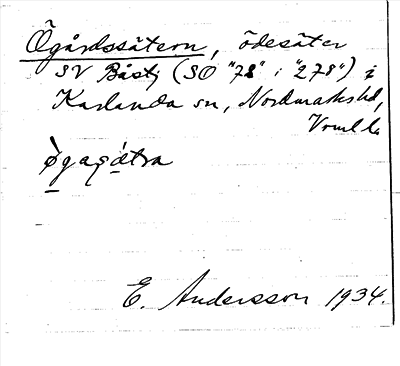 Ögårdssätern, ödesäter
SV Båsty (SO "78" i "278") i
Karlanda sn, Nordmarks hd,
Vrml l.
øgagátra
E. Andersson 1934.